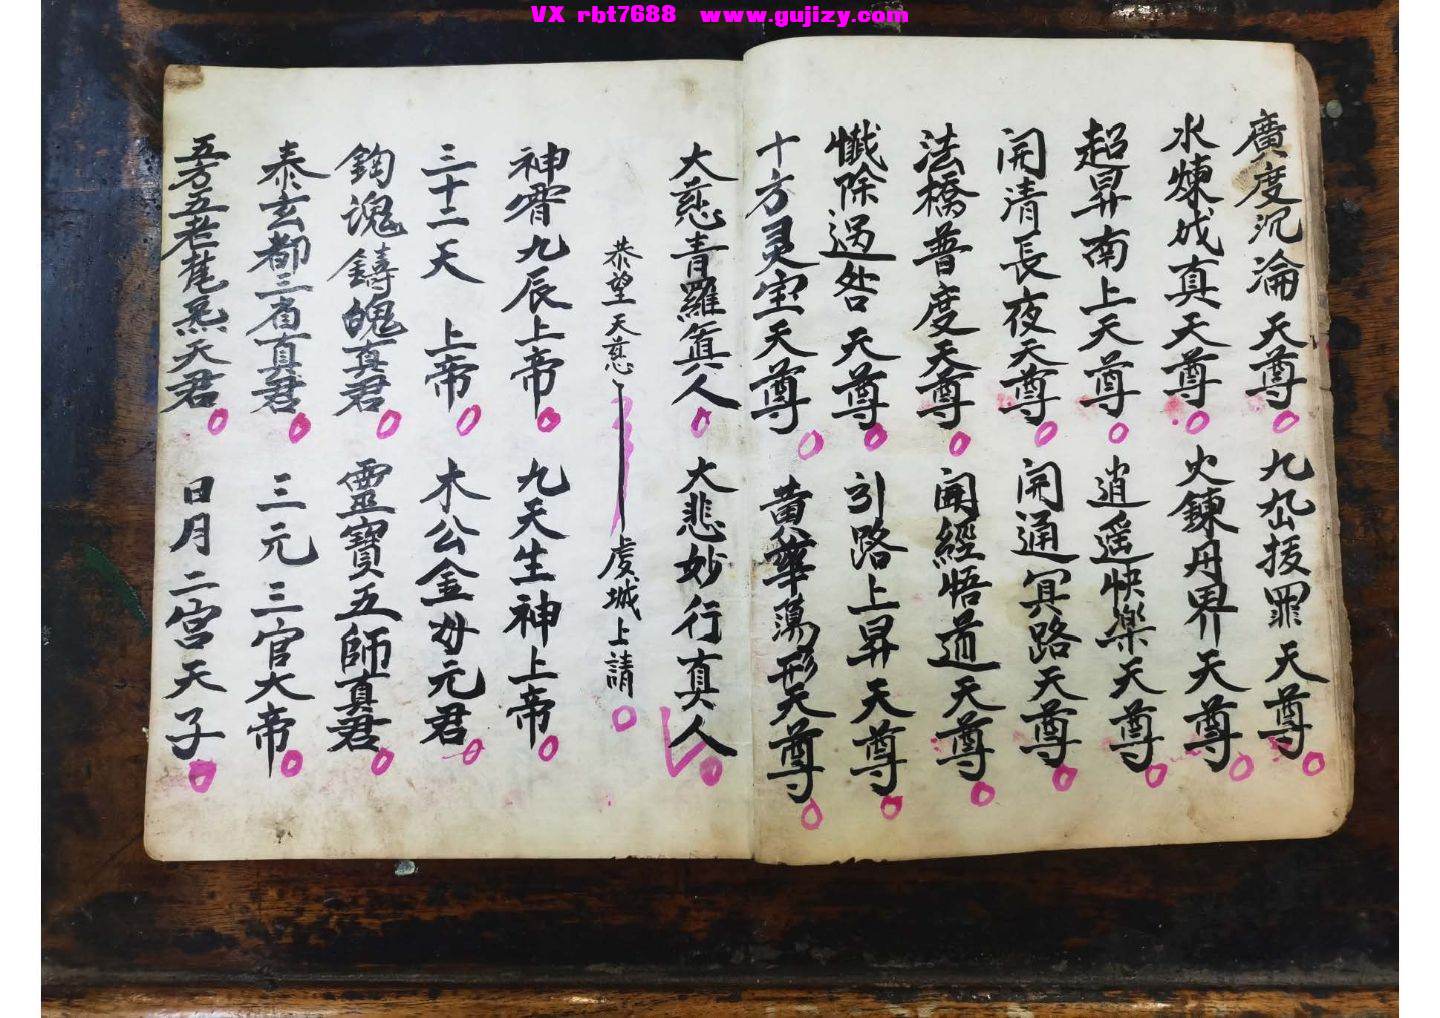 VX rbt7688 www.gujizy.com
廣度沉淪天尊 九幽拔罪天尊
水煉成真天尊 火鍊丹界天尊
超昇南上天尊 逍遥快樂天尊
開清長夜天尊 開通冥路天尊
法橋普度天尊 聞經悟道天尊
懺除過咎天尊 引路上昇天尊
十方灵宝天尊 黄華蕩形天尊
大慈青羅真人 大悲妙行真人
恭望天慈 虔城上請
神霄九辰上帝 九天生神上帝
三十二天 上帝 木公金母元君
鈎魂鑄魄真君 靈寶五師真君
泰玄都三省真君 三元三官大帝
五方五老炁天君 日月二宮天子